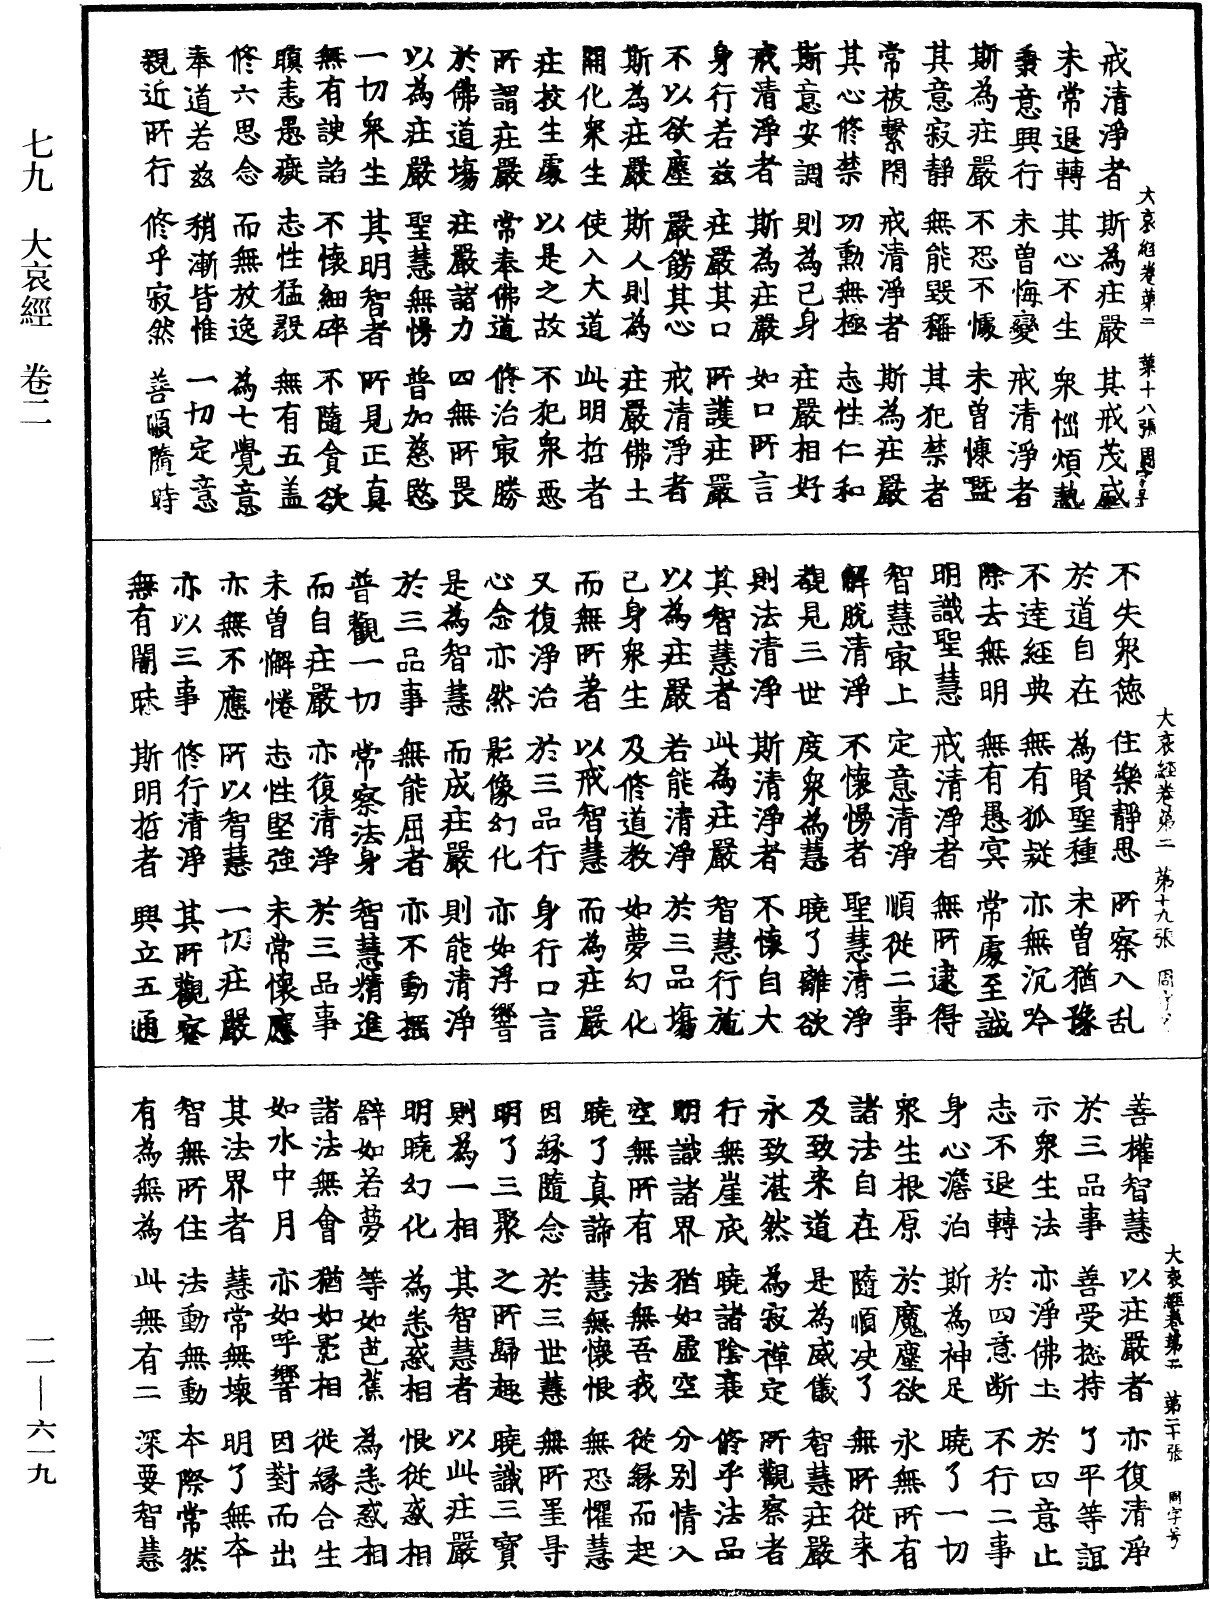 七九　大哀經　卷二
一一—六一九
大哀經卷第二　第十八張
戒清淨者　斯為莊嚴　其戒茂盛
未常退轉　其心不生　衆惱煩熱
秉意興行　未曾悔變　戒清淨者
斯為莊嚴　不恐不懅　未曾慊暨
其意寂靜　無能毀稱　其犯禁者
常被繫閇　戒清淨者　斯為莊嚴
其心修禁　功勳無極　志性仁和
斯意安調　則為己身　莊嚴相好
戒清淨者　斯為莊嚴　如口所言
身行若茲　莊嚴其口　所護莊嚴
不以欲塵　嚴餝其心　戒清淨者
斯為莊嚴　斯人則為　莊嚴佛土
開化衆生　使入大道　此明哲者
莊挍生處　以是之故　不犯衆惡
所謂莊嚴　常奉佛道　修治㝡勝
於佛道場　莊嚴諸力　四無所畏
以為莊嚴　聖慧無慢　普加慈愍
一切衆生　其明智者　所見正真
無有諛諂　不懷細碎　不隨貪欲
瞋恚愚癡　志性猛毅　無有五盖
修六思念　而無放逸　為七覺意
奉道若茲　稍漸皆惟　一切定意
親近所行　修乎寂然　善順隨時
大哀經卷第二　第十九張
不失衆德　住樂靜思　所察入乱
於道自在　為賢聖種　未曾猶豫
不達經典　無有狐疑　亦無沉吟
除去無明　無有愚冥　常處至誠
明識聖慧　戒清淨者　無所逮得
智慧㝡上　定意清淨　順從二事
解脫清淨　不懷慢者　聖慧清淨
覩見三世　度衆為慧　曉了離欲
則法清淨　斯清淨者　不懷自大
其智慧者　此為莊嚴　智慧行施
以為莊嚴　若能清淨　於三品場
己身衆生　及修道教　如夢幻化
而無所著　以戒智慧　而為莊嚴
又復淨治　於三品行　身行口言
心念亦然　影像幻化　亦如浮響
是為智慧　而成莊嚴　則能清淨
於三品事　無能屈者　亦不動摇
普觀一切　常察法身　智慧精進
而自莊嚴　亦復清淨　於三品事
未曾懈惓　志性堅強　未常懷應
亦無不應　所以智慧　一切莊嚴
亦以三事　修行清淨　其所觀察
無有闇昧　斯明哲者　興立五通
大哀經卷第二　第二十張　周字号
善權智慧　以莊嚴者　亦復清淨
於三品事　善受揔持　了平等誼
示衆生法　亦淨佛土　於四意止
志不退轉　於四意断　不行二事
身心澹泊　斯為神足　曉了一切
衆生根原　於魔塵欲　永無所有
諸法自在　隨順决了　無所從来
及致来道　是為威儀　智慧莊嚴
永致湛然　為寂禪定　所觀察者
行無崖底　曉諸陰衰　修乎法品
明識諸界　猶如虛空　分别情入
空無所有　法無吾我　從緣而起
曉了真諦　慧無懷恨　無恐懼慧
因緣隨念　於三世慧　無所罣㝵
明了三聚　之所歸趣　曉識三寶
則為一相　其智慧者　以此莊嚴
明曉幻化　為恚惑相　恨從惑相
辟如若夢　等如芭蕉　為恚惑相
諸法無會　猶如影相　從緣合生
如水中月　亦如呼響　因對而出
其法界者　慧常無壞　明了無本
智無所住　法動無動　本際常然
有為無為　此無有二　深要智慧